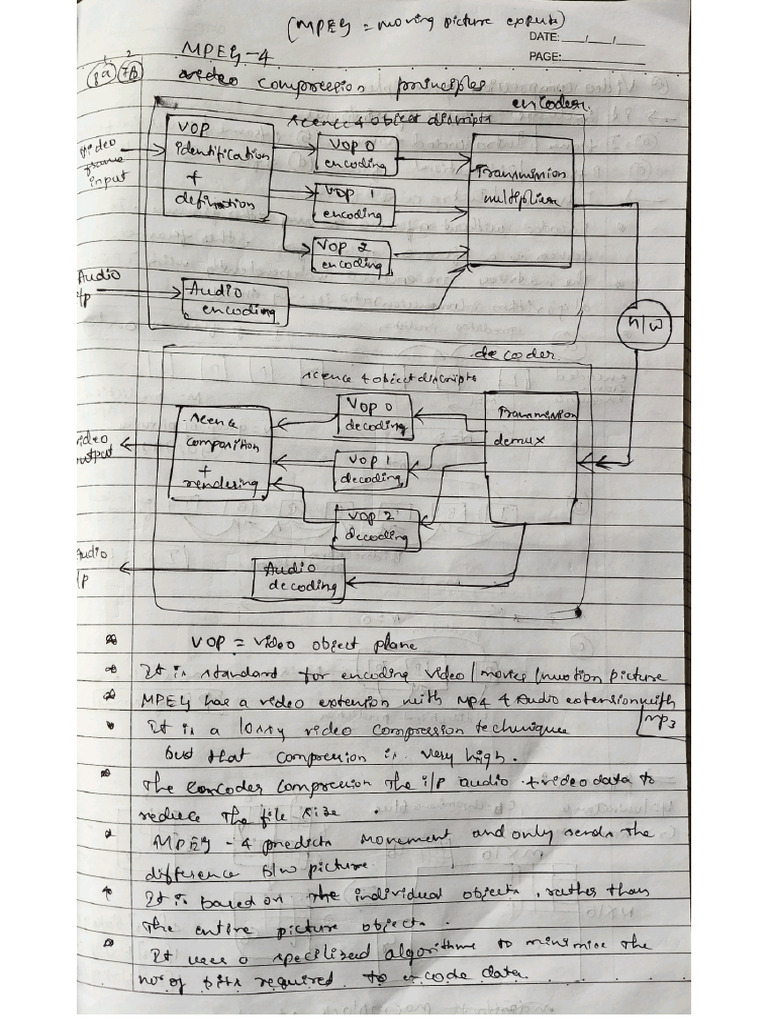 (MPEG = moving picture experts)
DATE: __/__/__
PAGE:
1 2
8a 7b
MPEG-4
video compression principles
encoder
scence & object discripts
VOP
identification
+
defination
VOP 0
encoding
VOP 1
encoding
VOP 2
encoding
Transmission
multiplier
video
frame
input
Audio
i/p
Audio
encoding
n/w
decoder
scence & object discripts
scence
composition
+
rendering
VOP 0
decoding
VOP 1
decoding
VOP 2
decoding
Transmission
demux
video
output
Audio
Audio
decoding
VOP = video object plane
It is standard for encoding video / movies / motion picture
MPEG has a video extension with MP4 & Audio extension with
mp3
It is a lossy video compression technique
but that compression is very high.
The encoder compression the i/p audio + video data to
reduce the file size.
MPEG-4 predicts movement and only sends the
difference b/w picture.
It is based on the individual objects, rather than
the entire picture objects.
It uses a specilized algorithms to minimise the
no. of bits required to encode data.